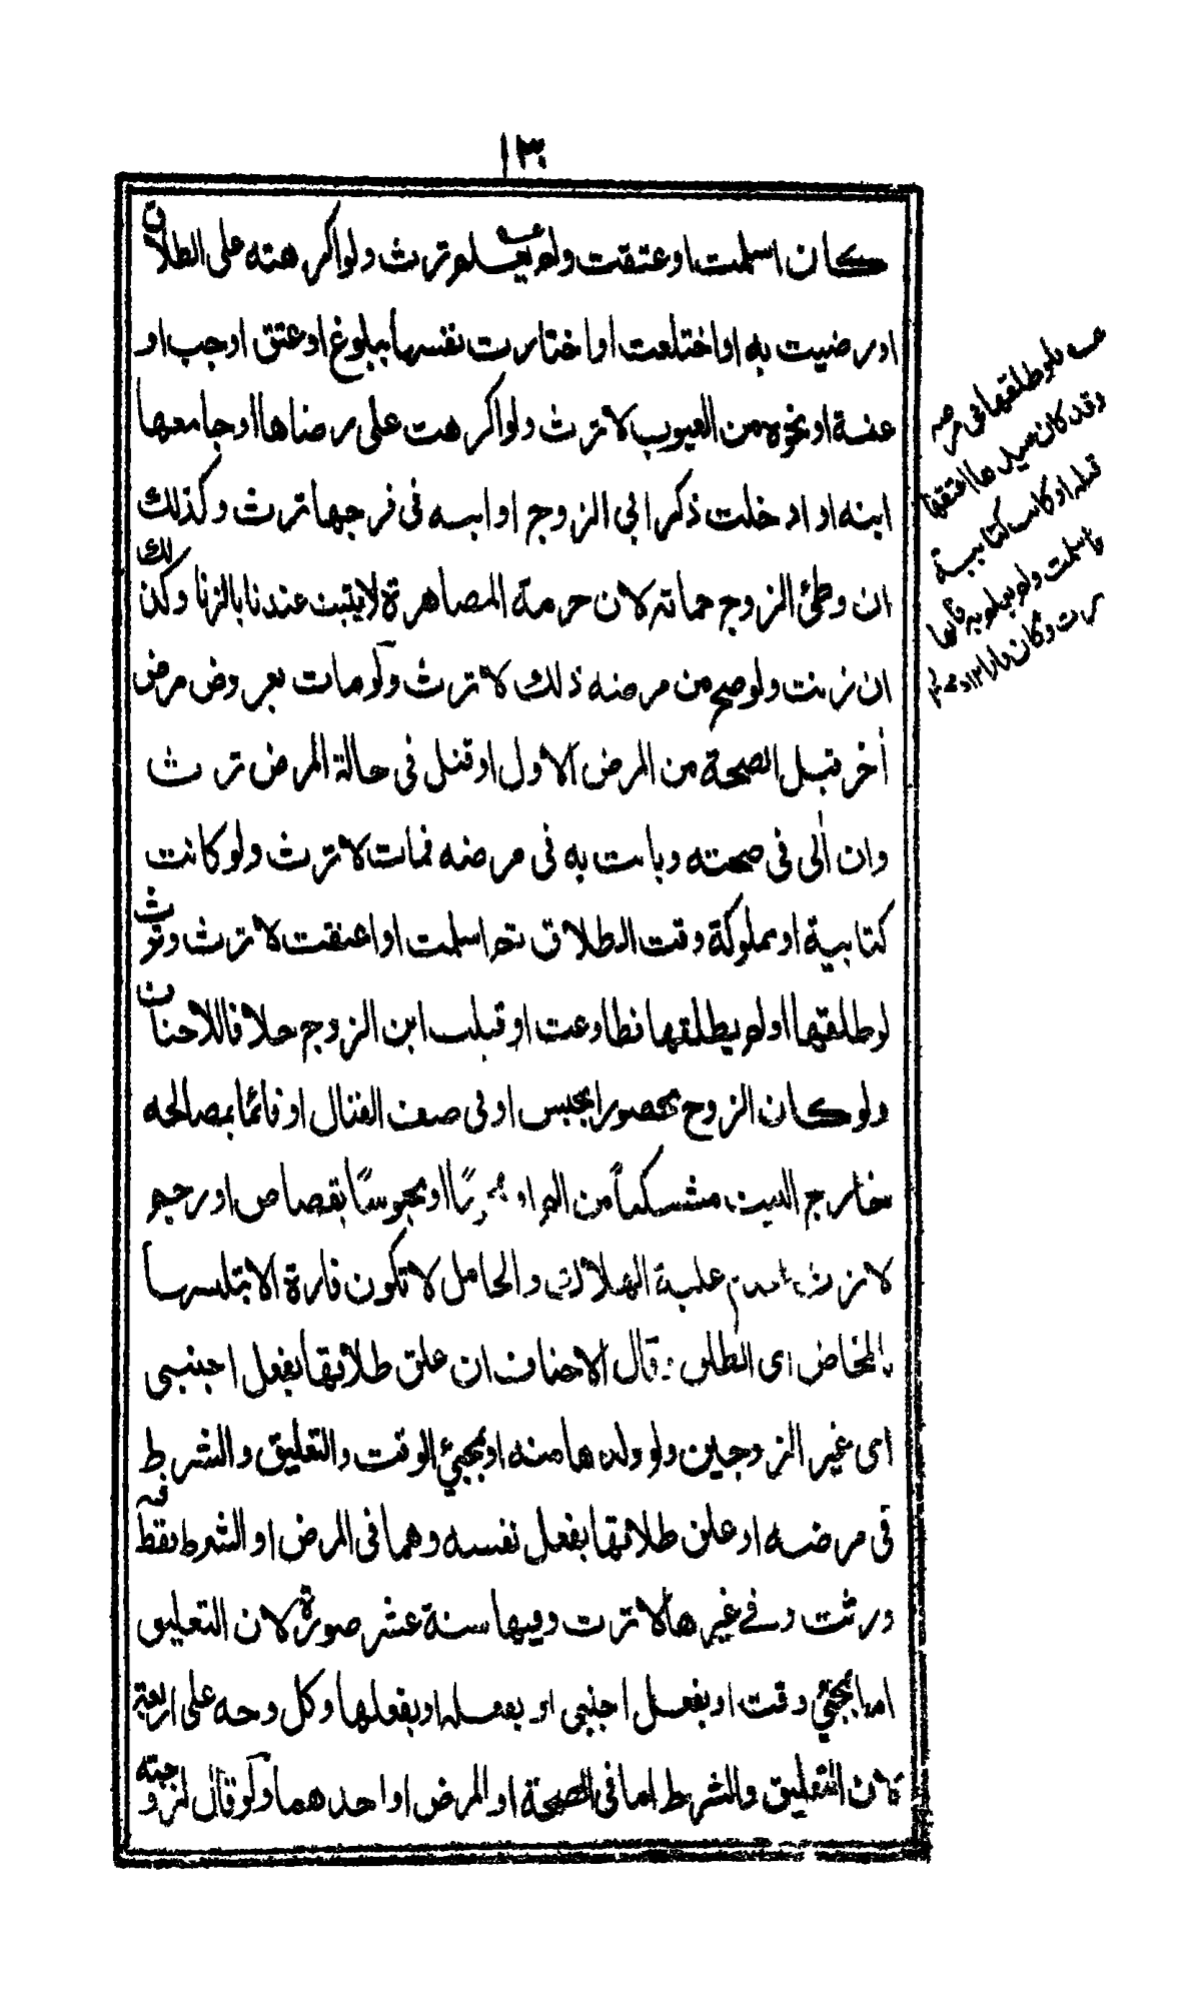 ١٣٠
كان اسلمت او عتقت ولم يعلم ترث ولو اكرهته على الطلاق
او رضيت به او اختلعت او اختارت نفسها ببلوغ او عتق او جب او
عنة او نحوه من العيوب لا ترث ولو اكرهت على رضاها او جامعها
ابنه او ادخلت ذكر ابي الزوج او ابنه في فرجها ترث وكذلك
ان وطئ الزوج حماته لان حرمة المصاهرة لا يثبت عندنا بالزنا وكذلك
ان زنت ولو صح من مرضه ذلك لا ترث ولو مات بعروض مرض
أخر قبل الصحة من المرض الاول او قتل في حالة المرض ترث
وان ألى في صحته وبانت به في مرضه فمات لا ترث ولو كانت
كتابية او مملوكة وقت الطلاق ثم اسلمت او اعتقت لا ترث وترث
لو طلقها او لم يطلقها فطاوعت او قبلت ابن الزوج خلافا للاحناف
ولو كان الزوج محصورا بحبس او في صف القتال او قائما بمصالحه
خارج البيت متشكيا من الم او او محبوسا بقصاص او رجم
لا ترث لعدم غلبة الهلاك والحامل لا تكون فارة الا بتلبسها
بالمخاض اى الطلق قال الاحناف ان علق طلاقها بفعل اجنبي
اى غير الزوجين ولو ولدها منه او بمجيئ الوقت والتعليق والشرط
في مرضه او علق طلاقها بفعل نفسه وهما في المرض او الشرط فقط فيه
ورثت وفي غيرها لا ترث وفيها ستة عشر صورة لان التعليق
اما بمجيئ وقت او بفعل اجنبي او بفعله او بفعلها وكل وجه على اربعة
لان التعليق والشرط اما في الصحة او المرض او احدهما ولو قال لزوجته
عه ولو طلقها في مرضه
وقد كان سيدها اعتقها
قبله او كانت كتابية
فاسلمت ولم يعلم به فانها
ترث